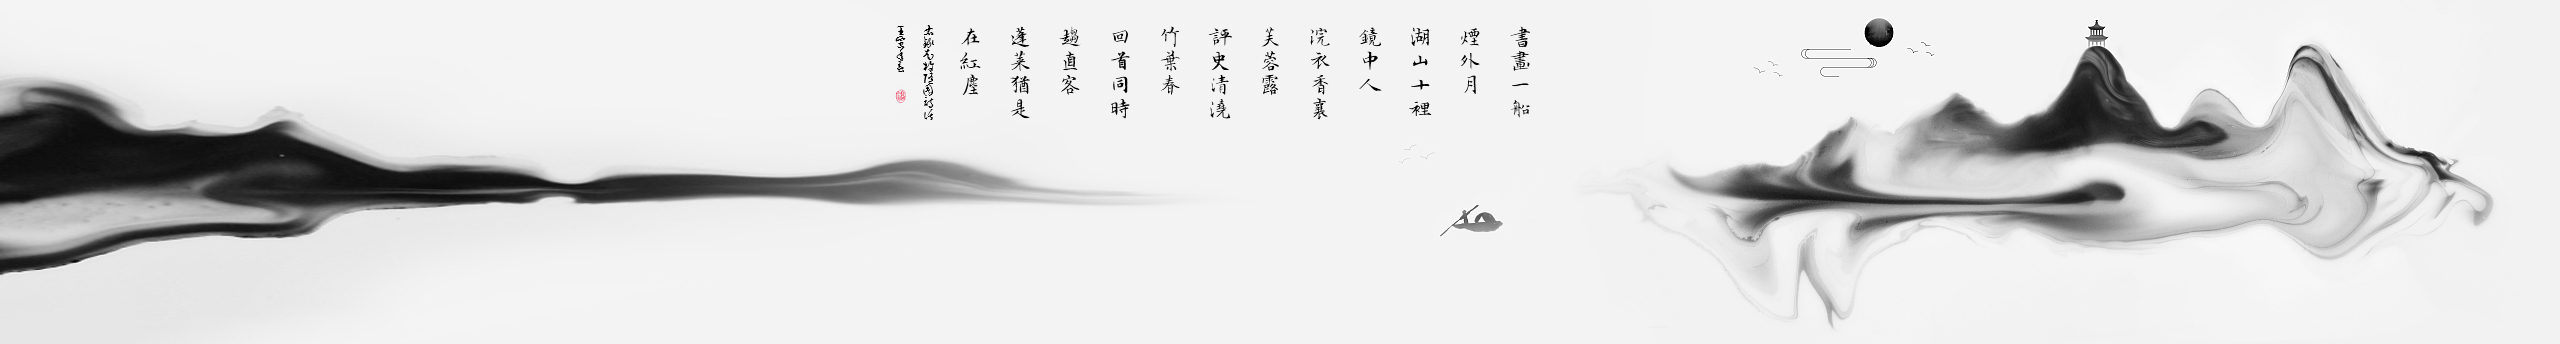 書畫一船
煙外月
湖山十裡
鏡中人
浣衣香裏
芙蓉露
評史清澆
竹葉春
回首同時
趨直客
蓬萊猶是
在紅塵